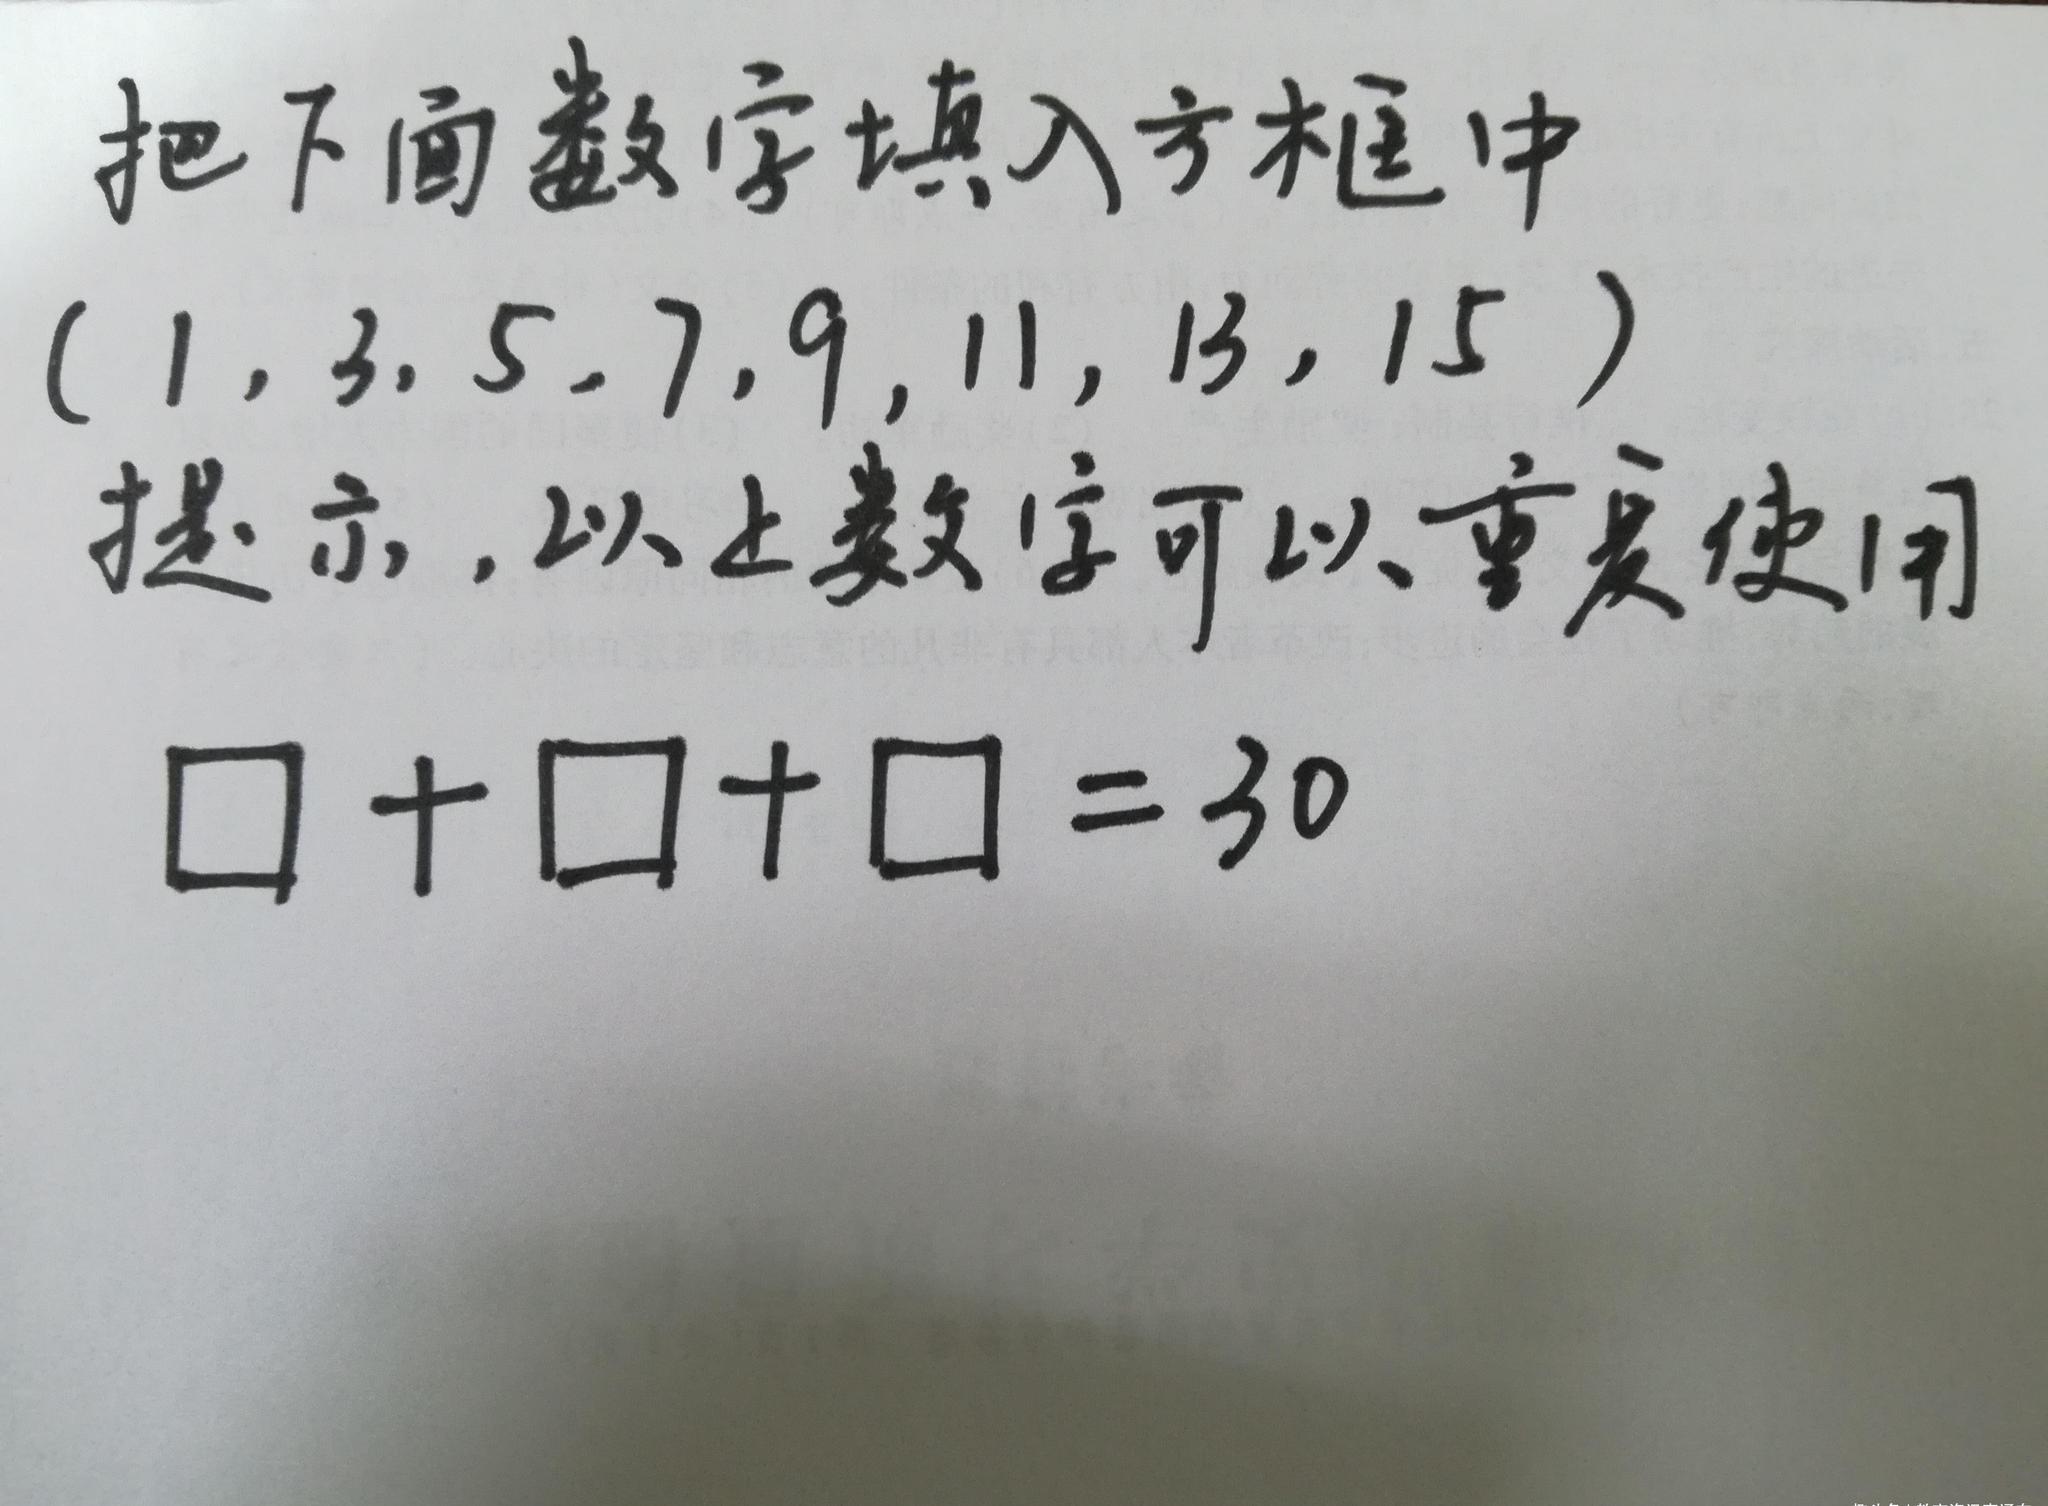 把下面数字填入方框中
(1,3,5,7,9,11,13,15)
提示,以上数字可以重复使用
□+□+□=30